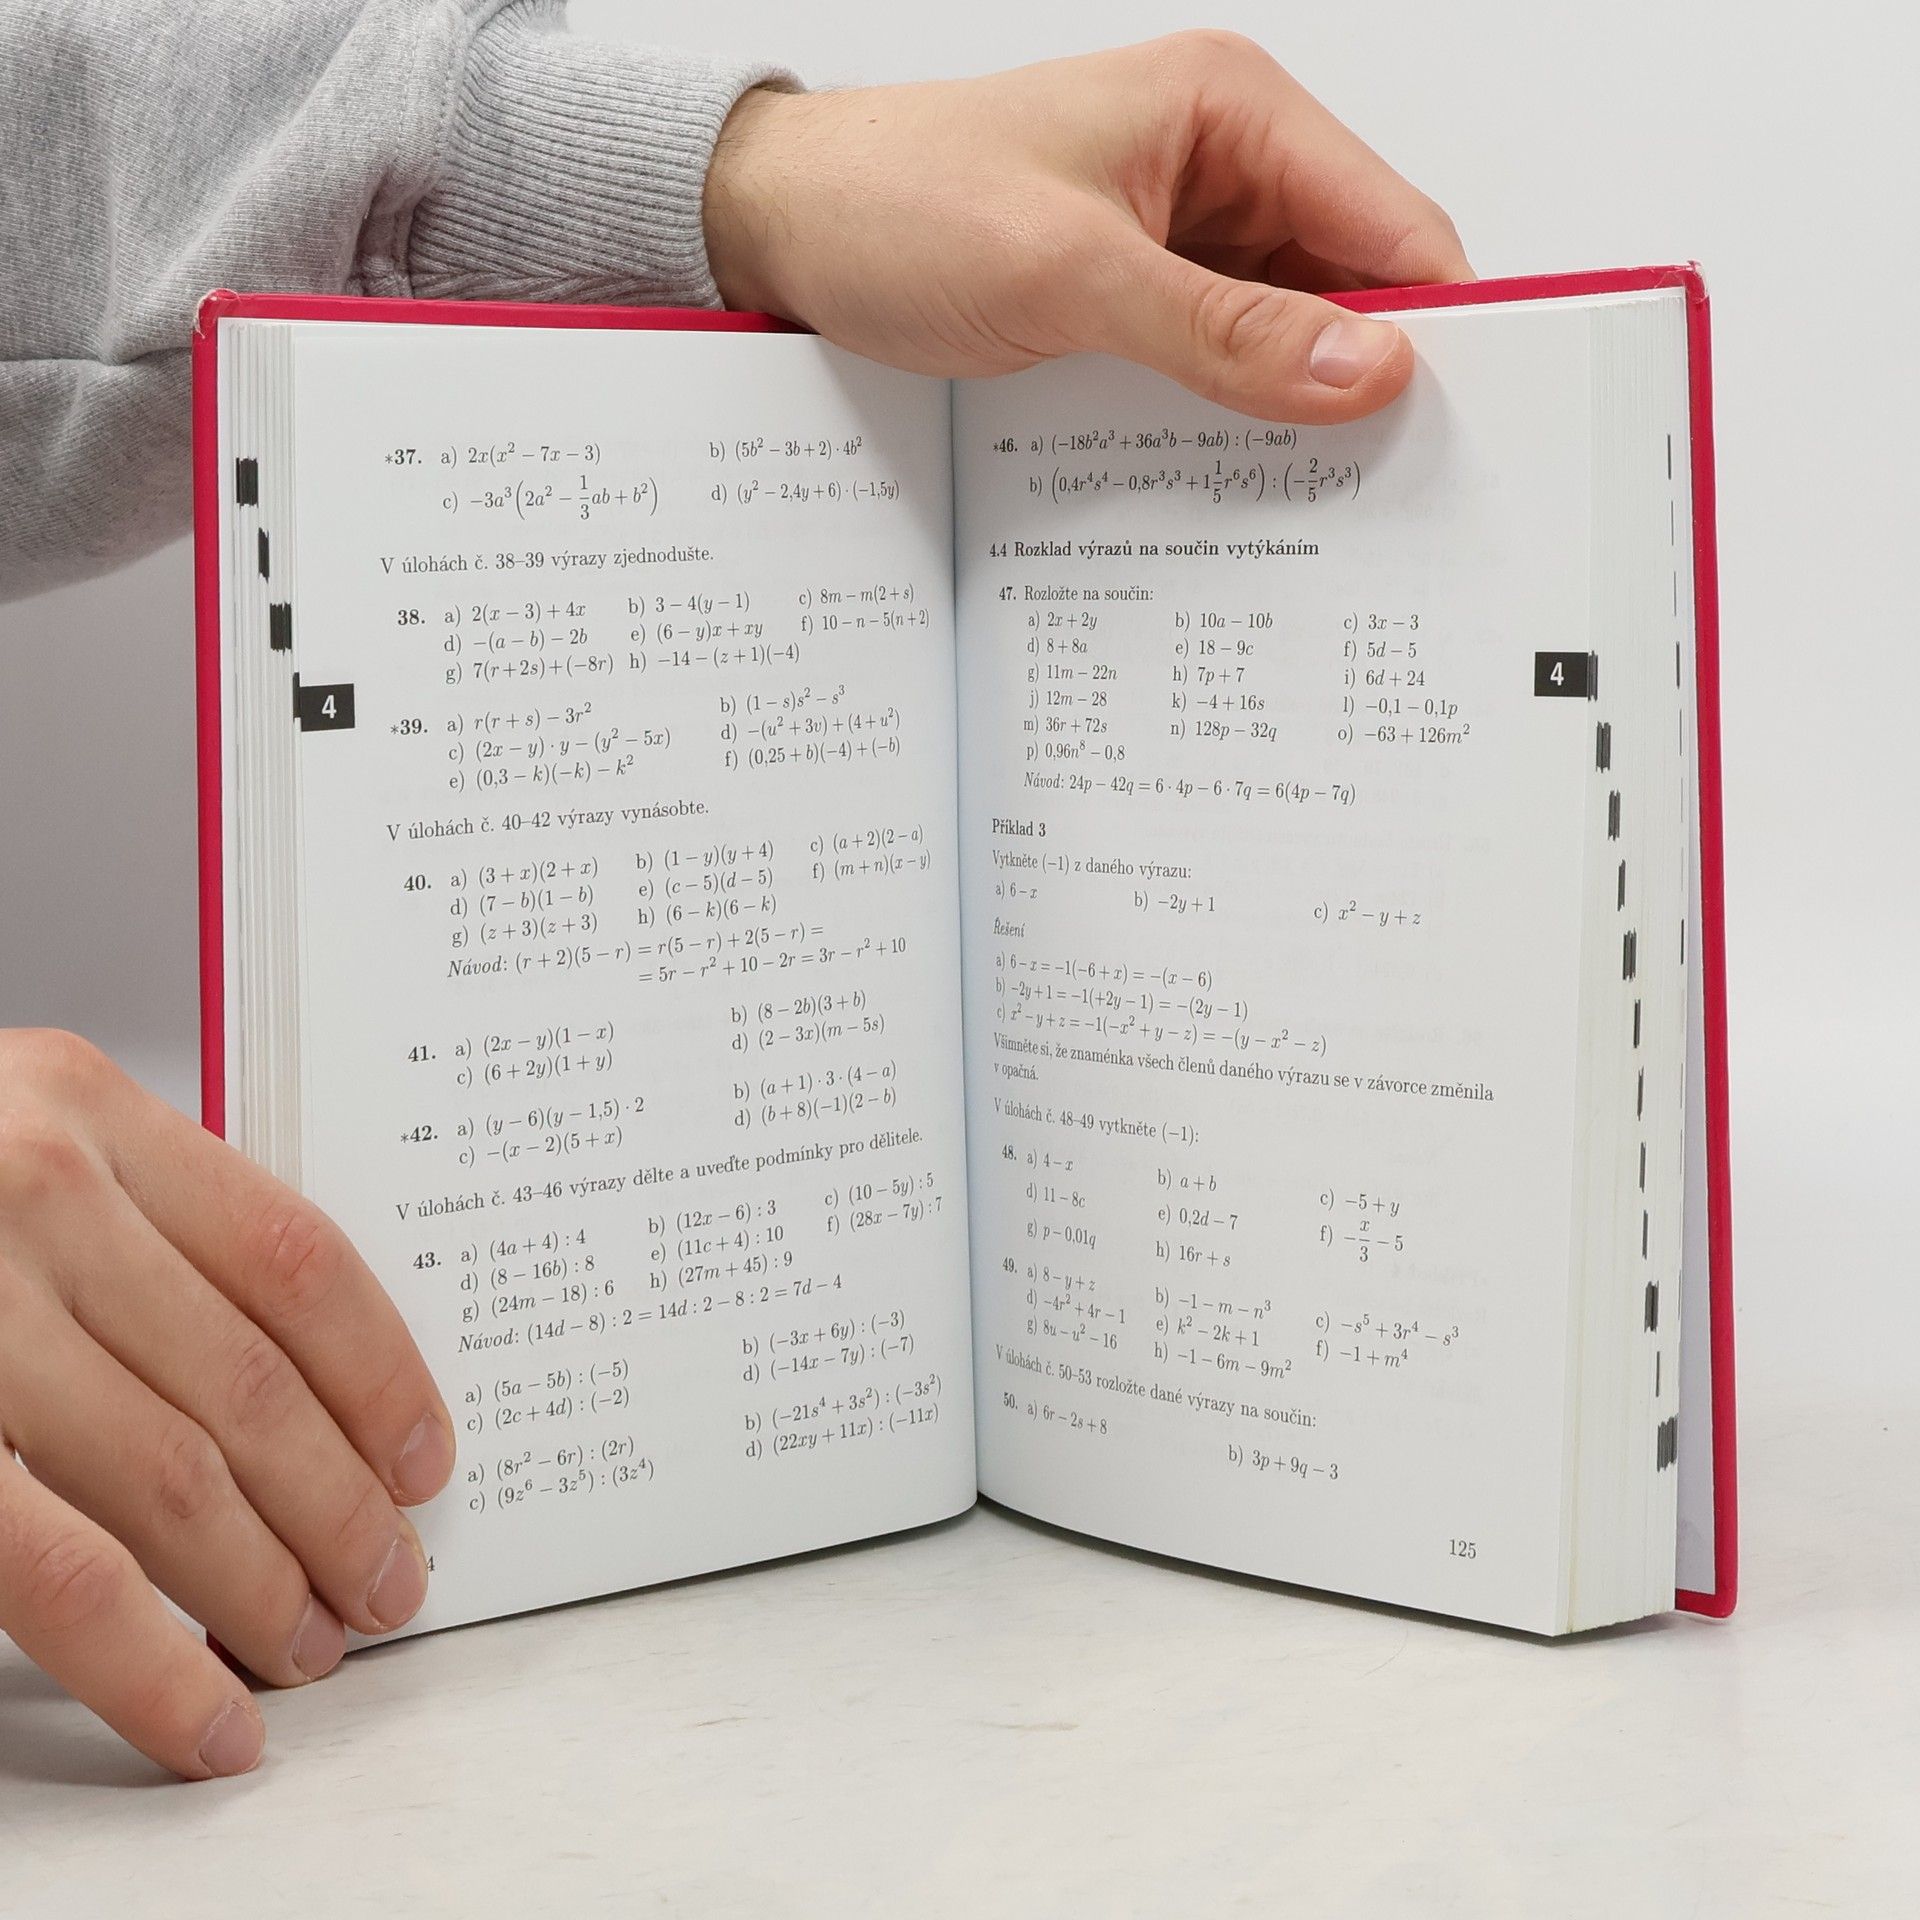 *37. a) 2x(x² − 7x − 3) b) (5b² − 3b + 2) · 4b²
c) −3a³(2a² − 1/3ab + b²) d) (y² − 2,4y + 6) · (−1,5y)
V úlohách č. 38–39 výrazy zjednodušte.
38. a) 2(x − 3) + 4x b) 3 − 4(y − 1) c) 8m − m(2 + s)
d) −(a − b) − 2b e) (6 − y)x + xy f) 10 − n − 5(n + 2)
g) 7(r + 2s) + (−8r) h) −14 − (z + 1)(−4)
*39. a) r(r + s) − 3r² b) (1 − s)s² − s³
c) (2x − y) · y − (y² − 5x) d) −(u² + 3v) + (4 + u²)
e) (0,3 − k)(−k) − k² f) (0,25 + b)(−4) + (−b)
4
V úlohách č. 40–42 výrazy vynásobte.
40. a) (3 + x)(2 + x) b) (1 − y)(y + 4) c) (a + 2)(2 − a)
d) (7 − b)(1 − b) e) (c − 5)(d − 5) f) (m + n)(x − y)
g) (z + 3)(z + 3) h) (6 − k)(6 − k)
Návod: (r + 2)(5 − r) = r(5 − r) + 2(5 − r) =
= 5r − r² + 10 − 2r = 3r − r² + 10
41. a) (2x − y)(1 − x) b) (8 − 2b)(3 + b)
c) (6 + 2y)(1 + y) d) (2 − 3x)(m − 5s)
*42. a) (y − 6)(y − 1,5) · 2 b) (a + 1) · 3 · (4 − a)
c) −(x − 2)(5 + x) d) (b + 8)(−1)(2 − b)
V úlohách č. 43–46 výrazy dělte a uveďte podmínky pro dělitele.
43. a) (4a + 4) : 4 b) (12x − 6) : 3 c) (10 − 5y) : 5
d) (8 − 16b) : 8 e) (11c + 4) : 10 f) (28x − 7y) : 7
g) (24m − 18) : 6 h) (27m + 45) : 9
Návod: (14d − 8) : 2 = 14d : 2 − 8 : 2 = 7d − 4
a) (5a − 5b) : (−5) b) (−3x + 6y) : (−3)
c) (2c + 4d) : (−2) d) (−14x − 7y) : (−7)
a) (8r² − 6r) : (2r) b) (−21s⁴ + 3s²) : (−3s²)
c) (9z⁶ − 3z⁵) : (3z⁴) d) (22xy + 11x) : (−11x)
4
*46. a) (−18b²a³ + 36a³b − 9ab) : (−9ab)
b) (0,4r⁴s⁴ − 0,8r³s³ + 1 1/5 r⁶s⁶) : (−2/5 r³s³)
4.4 Rozklad výrazů na součin vytýkáním
47. Rozložte na součin:
a) 2x + 2y b) 10a − 10b c) 3x − 3
d) 8 + 8a e) 18 − 9c f) 5d − 5
g) 11m − 22n h) 7p + 7 i) 6d + 24
j) 12m − 28 k) −4 + 16s l) −0,1 − 0,1p
m) 36r + 72s n) 128p − 32q o) −63 + 126m²
p) 0,96n⁸ − 0,8
Návod: 24p − 42q = 6 · 4p − 6 · 7q = 6(4p − 7q)
4
Příklad 3
Vytkněte (−1) z daného výrazu:
a) 6 − x b) −2y + 1 c) x² − y + z
Řešení
a) 6 − x = −1(−6 + x) = −(x − 6)
b) −2y + 1 = −1(+2y − 1) = −(2y − 1)
c) x² − y + z = −1(−x² + y − z) = −(y − x² − z)
Všimněte si, že znaménka všech členů daného výrazu se v závorce změnila
v opačná.
V úlohách č. 48–49 vytkněte (−1):
48. a) 4 − x b) a + b c) −5 + y
d) 11 − 8c e) 0,2d − 7 f) −x/3 − 5
g) p − 0,01q h) 16r + s
49. a) 8 − y + z b) −1 − m − n³ c) −s⁵ + 3r⁴ − s³
d) −4r² + 4r − 1 e) k² − 2k + 1 f) −1 + m⁴
g) 8u − u² − 16 h) −1 − 6m − 9m²
V úlohách č. 50–53 rozložte dané výrazy na součin:
50. a) 6r − 2s + 8 b) 3p + 9q − 3
125